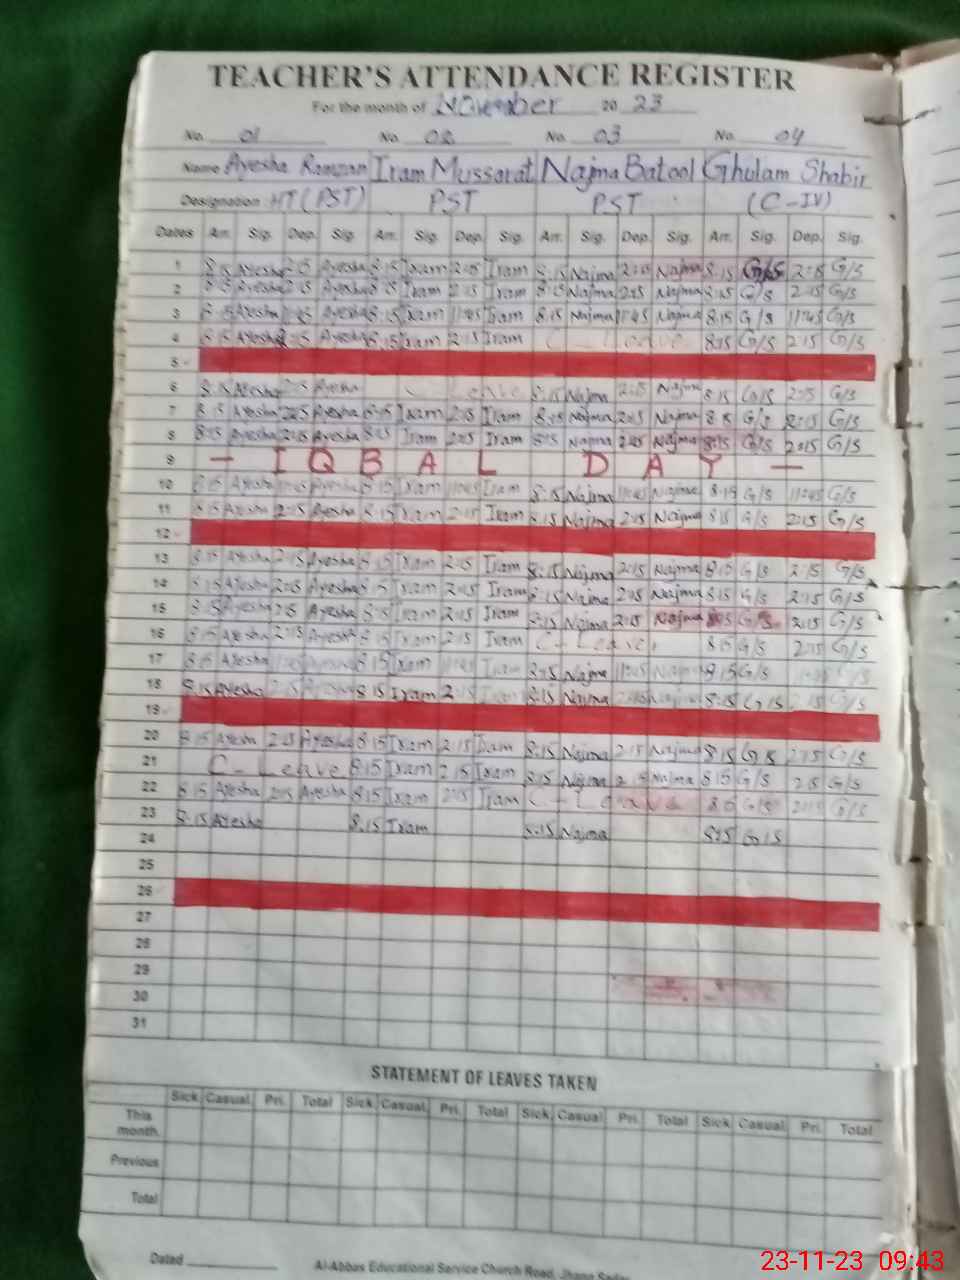 TEACHER'S ATTENDANCE REGISTER
For the month of November 20 23
No. 01 No. 02 No. 03 No. 04
Name Ayesha Ramzan Iram Mussarat Najma Batool Ghulam Shabir
Designation HT (PST) PST PST (C-IV)
Dates Arr. Sig. Dep. Sig. Arr. Sig. Dep. Sig. Arr. Sig. Dep. Sig. Arr. Sig. Dep. Sig.
1 8:15 Ayesha 2:15 Ayesha 8:15 Iram 2:15 Iram 8:15 Najma 2:15 Najma 8:15 G/S 2:15 G/S
2 8:15 Ayesha 2:15 Ayesha 8:15 Iram 2:15 Iram 8:15 Najma 2:15 Najma 8:15 G/S 2:15 G/S
3 8:15 Ayesha 11:45 Ayesha 8:15 Iram 11:45 Iram 8:15 Najma 11:45 Najma 8:15 G/S 11:45 G/S
4 8:15 Ayesha 2:15 Ayesha 8:15 Iram 2:15 Iram C - Leave 8:15 G/S 2:15 G/S
5
6 8:15 Ayesha 2:15 Ayesha C - Leave 8:15 Najma 2:15 Najma 8:15 G/S 2:15 G/S
7 8:15 Ayesha 2:15 Ayesha 8:15 Iram 2:15 Iram 8:15 Najma 2:15 Najma 8:15 G/S 2:15 G/S
8 8:15 Ayesha 2:15 Ayesha 8:15 Iram 2:15 Iram 8:15 Najma 2:15 Najma 8:15 G/S 2:15 G/S
9 - IQBAL DAY -
10 8:15 Ayesha 11:45 Ayesha 8:15 Iram 11:45 Iram 8:15 Najma 11:45 Najma 8:15 G/S 11:45 G/S
11 8:15 Ayesha 2:15 Ayesha 8:15 Iram 2:15 Iram 8:15 Najma 2:15 Najma 8:15 G/S 2:15 G/S
12
13 8:15 Ayesha 2:15 Ayesha 8:15 Iram 2:15 Iram 8:15 Najma 2:15 Najma 8:15 G/S 2:15 G/S
14 8:15 Ayesha 2:15 Ayesha 8:15 Iram 2:15 Iram 8:15 Najma 2:15 Najma 8:15 G/S 2:15 G/S
15 8:15 Ayesha 2:15 Ayesha 8:15 Iram 2:15 Iram 8:15 Najma 2:15 Najma 8:15 G/S 2:15 G/S
16 8:15 Ayesha 2:15 Ayesha 8:15 Iram 2:15 Iram C - Leave 8:15 G/S 2:15 G/S
17 8:15 Ayesha 11:45 Ayesha 8:15 Iram 11:45 Iram 8:15 Najma 11:45 Najma 8:15 G/S G/S
18 8:15 Ayesha 2:15 Ayesha 8:15 Iram 2:15 Iram 8:15 Najma 2:15 Najma 8:15 G/S 2:15 G/S
19
20 8:15 Ayesha 2:15 Ayesha 8:15 Iram 2:15 Iram 8:15 Najma 2:15 Najma 8:15 G/S 2:15 G/S
21 C - Leave 8:15 Iram 2:15 Iram 8:15 Najma 2:15 Najma 8:15 G/S 2:15 G/S
22 8:15 Ayesha 2:15 Ayesha 8:15 Iram 2:15 Iram C - Leave 8:15 G/S 2:15 G/S
23 8:15 Ayesha 8:15 Iram 8:15 Najma 8:15 G/S
24
25
26
27
28
29
30
31
STATEMENT OF LEAVES TAKEN
Sick Casual Pri. Total Sick Casual Pri. Total Sick Casual Pri. Total Sick Casual Pri. Total
This month.
Previous
Total
Dated
Al-Abbas Educational Service Church Road, Jhang Sadar
23-11-23 09:43